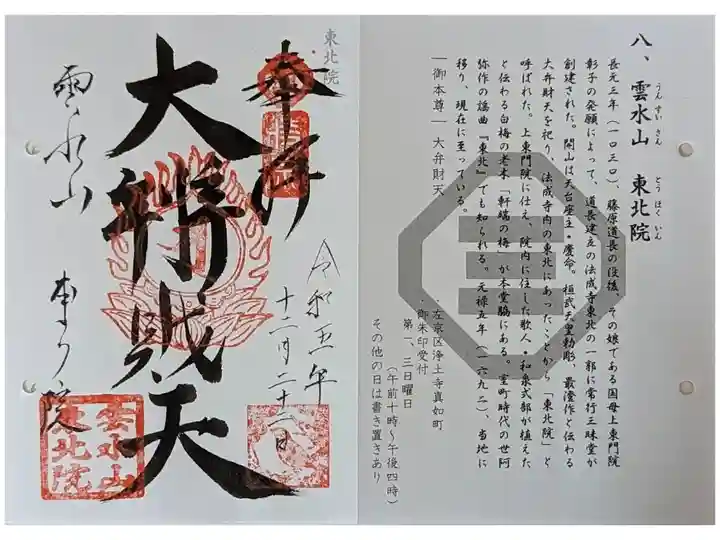 八、雲水山 東北院
うんすいさん とうほくいん
長元三年(一〇三〇)、藤原道長の没後、その娘である国母上東門院
彰子の発願によって、道長建立の法成寺東北の一郭に常行三昧堂が
創建された。開山は天台座主・慶命。桓武天皇勅彫、最澄作と伝わる
大弁財天を祀り、法成寺内の東北にあったことから「東北院」と
呼ばれた。上東門院に仕え、院内に住した歌人・和泉式部が植えた
と伝わる白梅の老木「軒端の梅」が本堂脇にある。室町時代の世阿
弥作の謡曲『東北』でも知られる。元禄五年(一六九二)、当地に
移り、現在に至っている。
―御本尊― 大弁財天
・左京区浄土寺真如町
・御朱印受付
第一、三日曜日
(午前十時〜午後四時)
その他の日は書き置きあり
東北院
奉拝
令和五年
十二月二十二日
大辨財天
雲水山
東北院
雲水山
東北院